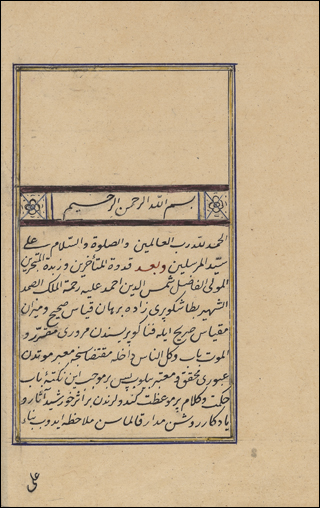 بسم الله الرحمن الرحيم
الحمد لله رب العالمين والصلوة والسلام على
سيد المرسلين وبعد قدوة المتأخرين وزبدة المتبحرين
المولى الفاضل شمس الدين احمد عليه رحمة الملك الصمد
الشهير بطاشكوپرى زاده برهان قياس صحيح وميزان
مقياس صريح ايله فناكوپريسندن مرورى مقرر و
الموت باب وكل الناس داخله مقتضاسنجه معبر موتدن
عبورى محقق ومعتبر بلوب پس برموجب اين نكته باب
حكمت وكلام پر موعظت كندولرندن بر اثر خورشيد آثار و
يادكار روشن مدار قالماسن ملاحظه ايدوب بناء
على